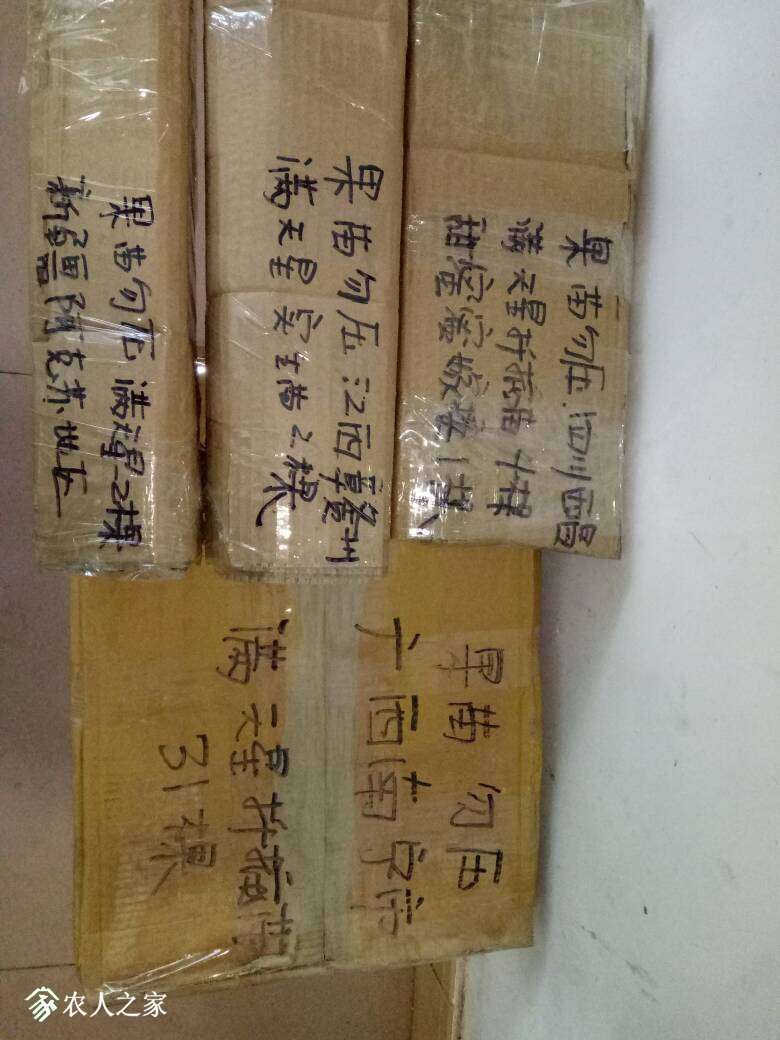 果苗勿压满天星2棵
新疆阿克苏地区
果苗勿压江西赣州
满天星实生苗2棵
果苗勿压四川西昌
满天星扦插苗十棵
甜蜜蜜嫁接1棵
果苗勿压
广西南宁市
满天星扦插苗
31棵
农人之家